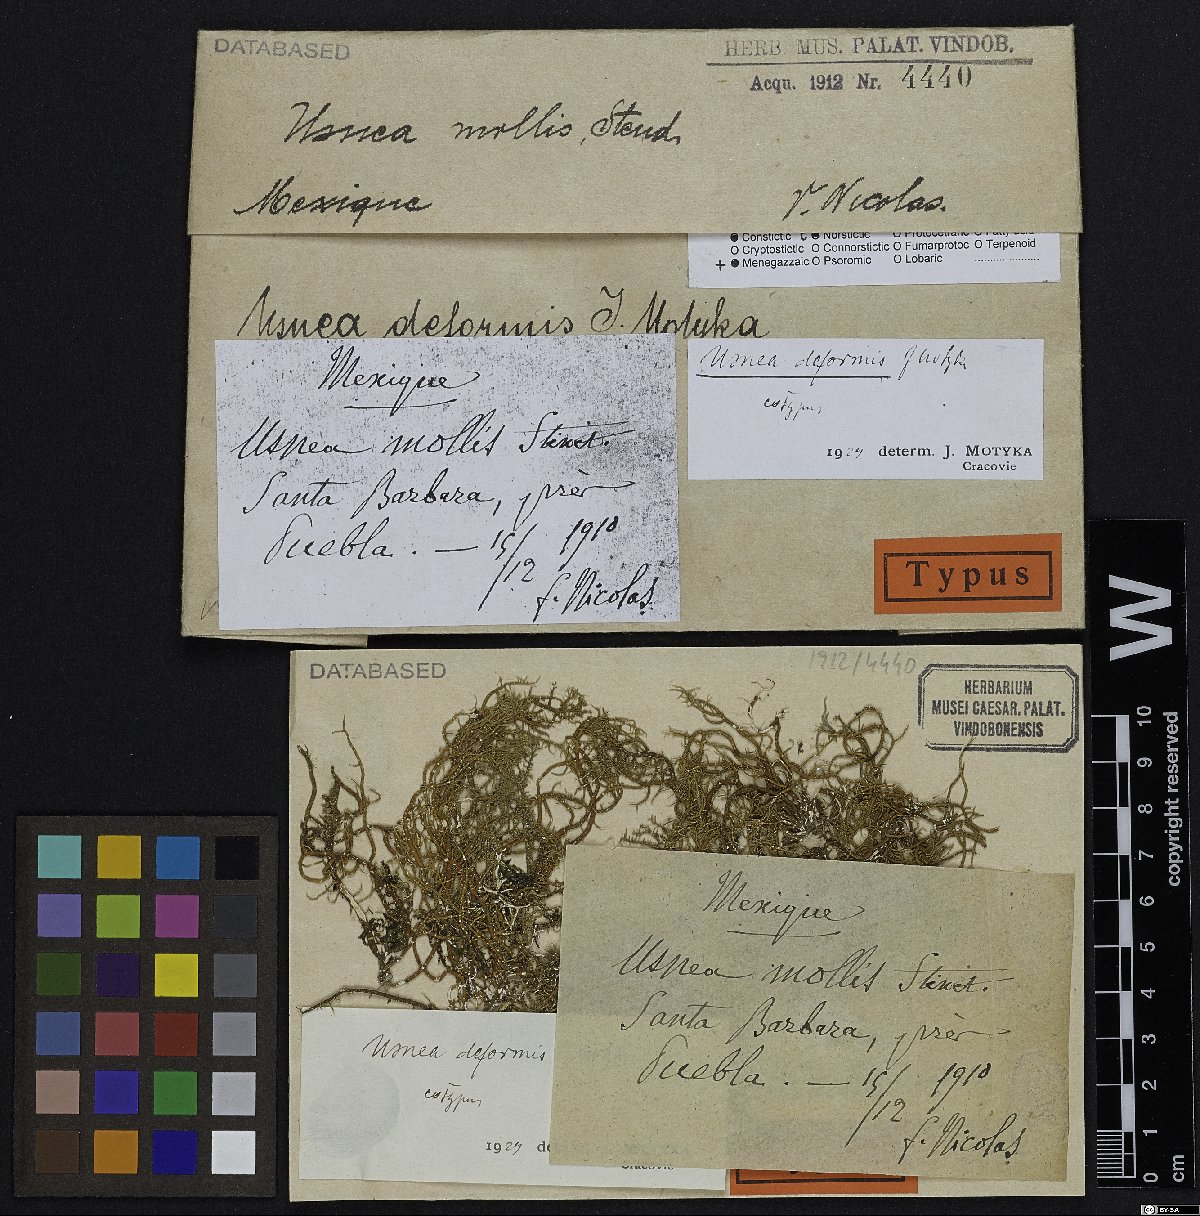 DATABASED
HERB. MUS. PALAT. VINDOB.
Acqu. 1912 Nr. 4440
Usnea mollis Steud.
Mexique
r. Nicolas.
Constictic Norstictic
O Cryptostictic O Connorstictic O Fumarprotoc O Terpenoid
+ ● Menegazzaic O Psoromic O Lobaric
Usnea deformis J. Motyka
Mexique
Usnea mollis Stirt.
Santa Barbara, près
Puebla. — 15/12 1910
f. Nicolas
Usnea deformis J Motyka
cotypus
1929 determ. J. MOTYKA
Cracovie
Typus
DATABASED
1912/4440
HERBARIUM
MUSEI CAESAR. PALAT.
VINDOBONENSIS
Mexique
Usnea mollis Stirt.
Santa Barbara, près
Puebla. — 15/12 1910
f. Nicolas
Usnea deformis
cotypus
1929 de
Cracovie
W
copyright reserved
0 1 2 3 4 5 6 7 8 9 10
cm
cc BY-SA